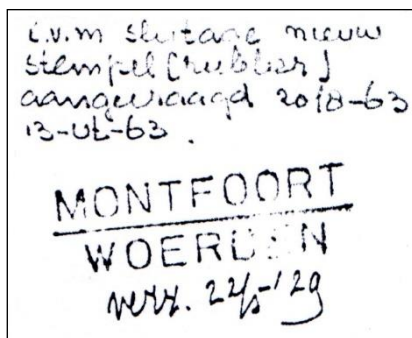 i.v.m slitage nieuw
stempel (rubber)
aangevraagd 20/8-63
13-VI-63.
MONTFOORT
WOERDEN
verz. 22/5-'29